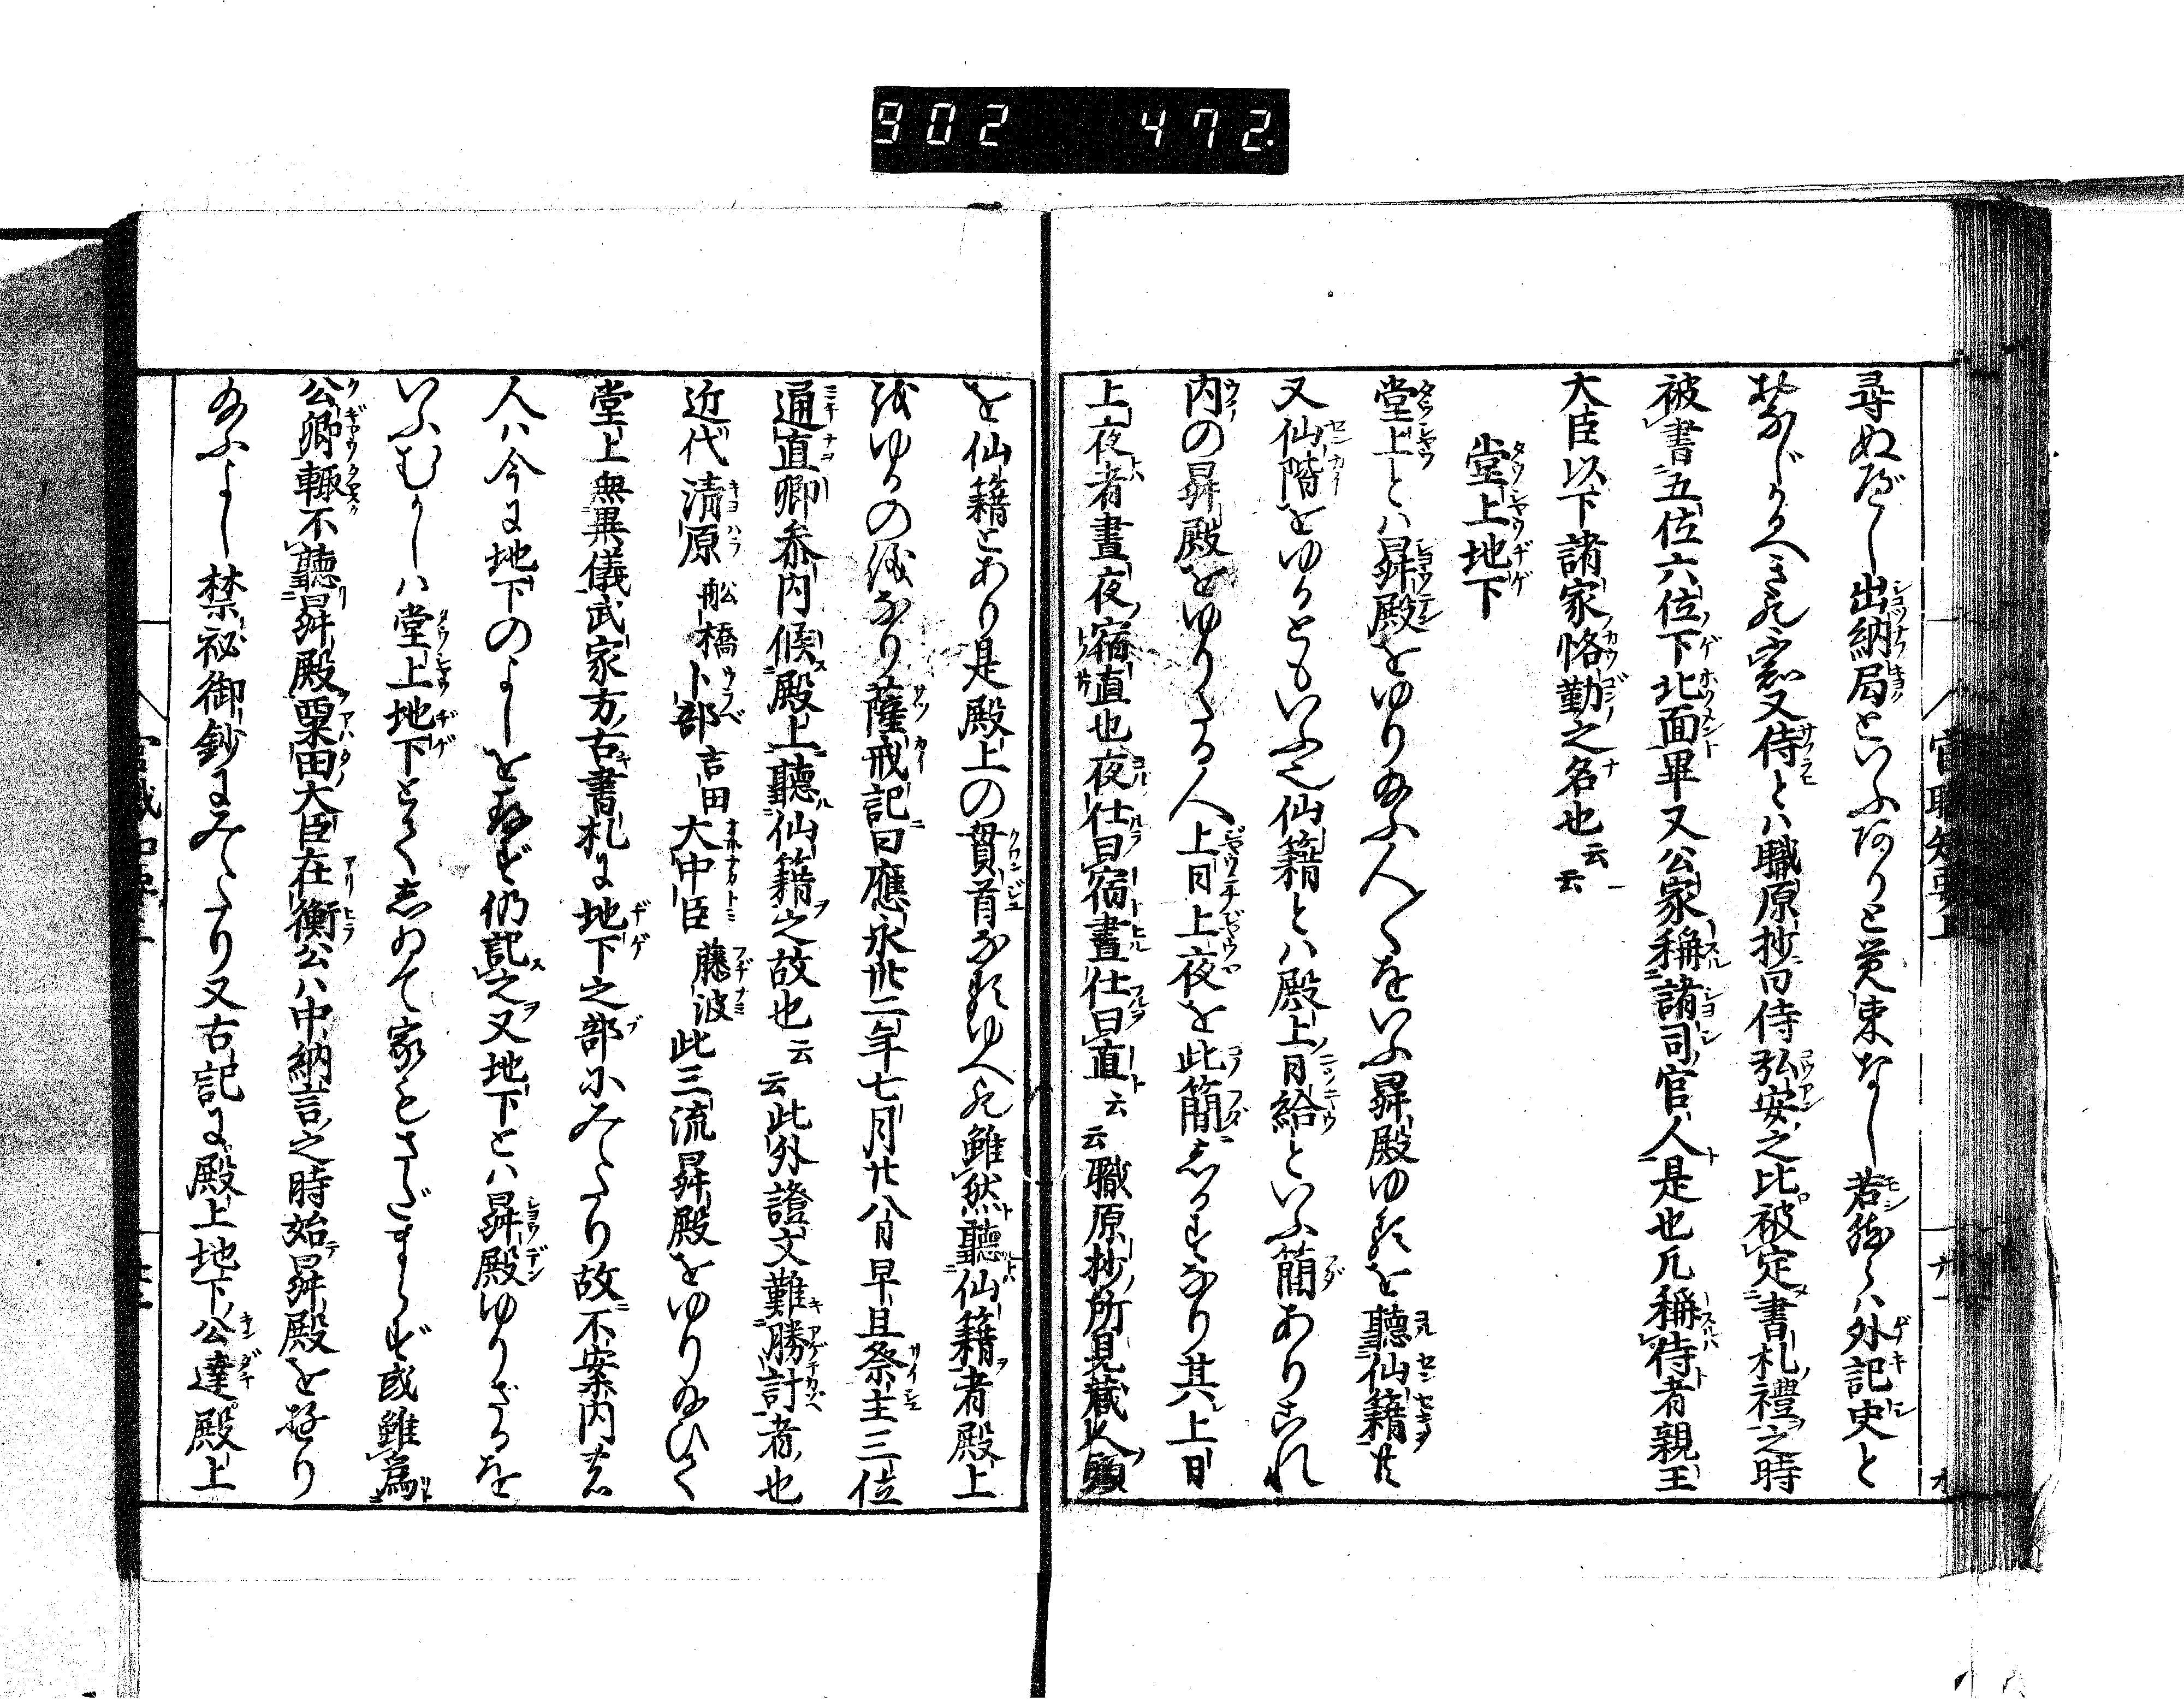 902 472.
尋ぬべし出納局といふ所ありと覚束なし若然らは外記史と
おなじかるべき歟又侍とハ職原抄曰侍弘安之比被定書札禮之時
被書五位六位下北面畢又公家稱諸司官人是也凡稱侍者親王
大臣以下諸家恪勤之名也云云
堂上地下
堂上とハ昇殿をゆり給ふ人〱をいふ昇殿ゆるすを聽仙籍共
又仙階をゆるともいふ也仙籍とハ殿上ノ日給といふ簡ありこれ
内の昇殿をゆりたる人上日上夜を此簡にしるすなり其上日
上夜者晝夜ノ宿直也夜仕曰宿晝仕曰直云云職原抄ノ所見蔵人頭
を仙籍とあり是殿上の貫首なるゆへ歟雖然聽仙籍者殿上
をゆるの儀なり薩戒記曰應永卅二年七月廿八日早旦祭主三位
通直卿参内候殿上聽仙籍之故也云云此外證文難勝計者也
近代清原舩橋卜部吉田大中臣藤波此三流昇殿をゆり給ひて
堂上無異儀武家方古書札に地下之部にみへたり故不案内の
人ハ今に地下のよしを存ず仍記之又地下とハ昇殿ゆりざるを
いふむかしハ堂上地下とてしゐて家もさだまらず或雖為
公卿輙不聽昇殿粟田大臣在衡公ハ中納言之時始昇殿を聴り
給ふよし禁祕御鈔にみへたり又古記に殿上地下ノ公達殿上